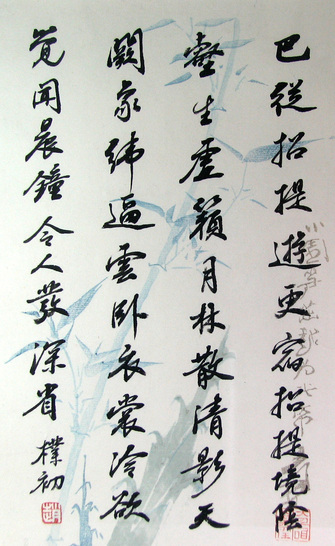 已從招提遊更宿招提境陰
壑生虛籟月林散清影天
闕象緯逼雲臥衣裳冷欲
覺聞晨鐘令人發深省 樸初
趙